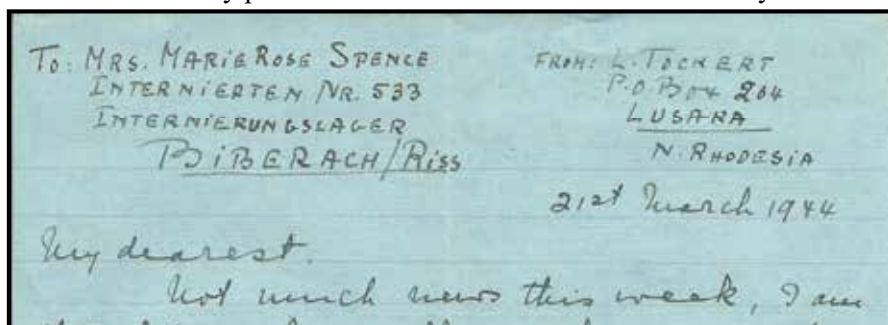 To: Mrs. Marie Rose Spence
Internierten Nr. 533
Internierungslager
Biberach/Riss
From: L. Tockert
P.O Box 264
Lusaka
N. Rhodesia
21st March 1944
My dearest.
Not much news this week, I am